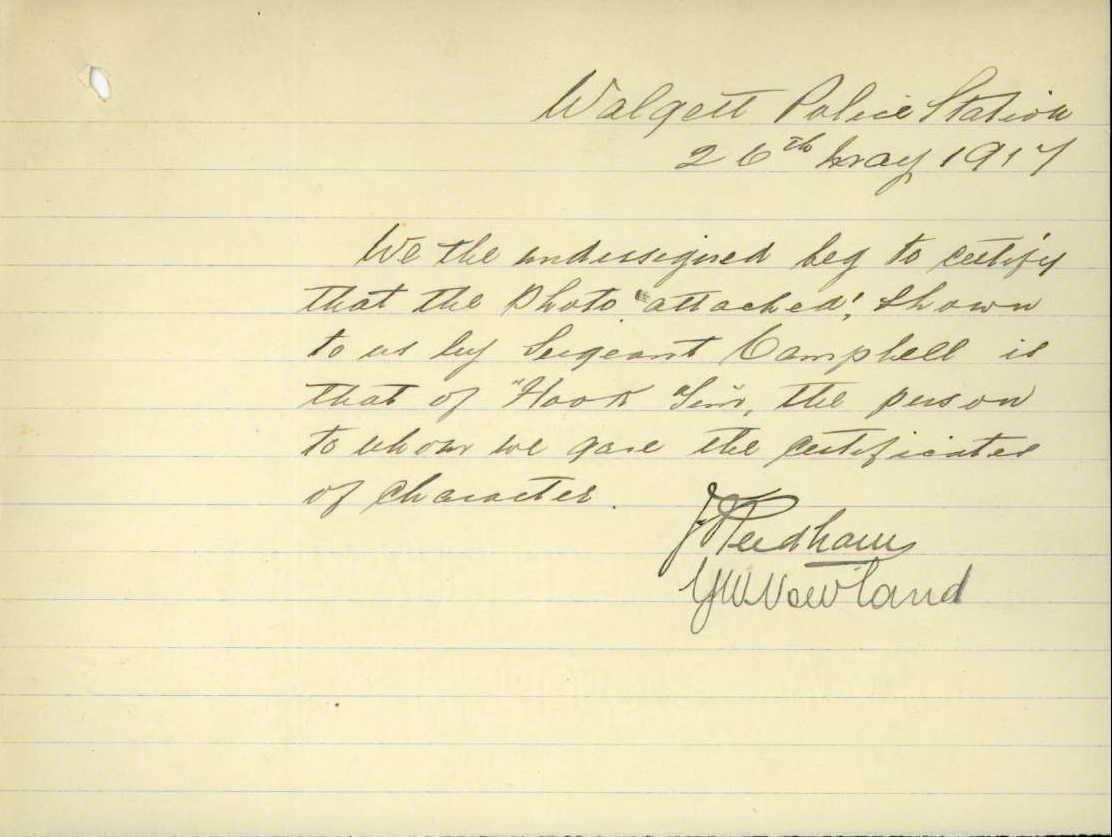 Walgett Police Station
26th May 1917
We the undersigned beg to certify
that the Photo "attached", shown
to us by Sergeant Campbell is
that of "Hook", the person
to whom we gave the certificates
of character.
J Needham
W Newland